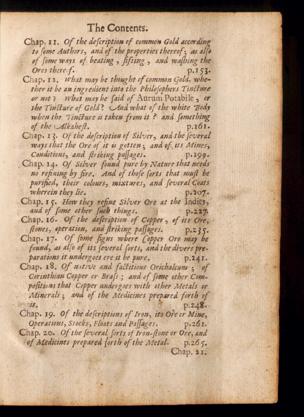 The Contents.
Chap. 11. Of the description of common Gold according
to some Authors, and of the properties thereof; as also
of some ways of beating, sifting, and washing the
Ores there f. p.153.
Chap. 12. What may be thought of common Gold, whe-
ther it be an ingredient into the Philosophers Tincture
or not? What may be said of Aurum Potabile, or
the Tincture of Gold? And what of the white Body
when the Tincture is taken from it? and something
of the Alkahest. p.161.
Chap. 13. Of the description of Silver, and the several
ways that the Ore of it is gotten; and of its Mines,
Conditions, and striking passages. p.199.
Chap. 14. Of Silver found pure by Nature that needs
no refining by fire. And of those sorts that must be
purified, their colours, mixtures, and several Coats
wherein they lie. p.207.
Chap. 15. How they refine Silver Ore at the Indies,
and of some other such things. p.227.
Chap. 16. Of the description of Copper, of its Ore,
stones, operation, and striking passages. p.235.
Chap. 17. Of some signs where Copper Ore may be
found, as also of its several sorts, and the divers pre-
parations it undergoes ere it be pure. p.241.
Chap. 18. Of native and factitious Orichalcum; of
Corinthian Copper or Brass; and of some other Com-
positions that Copper undergoes with other Metals or
Minerals; and of the Medicines prepared forth of
it. p.248.
Chap. 19. Of the descriptions of Iron, its Ore or Mine,
Operations, Stocks, Floats and Passages. p.261.
Chap. 20. Of the several sorts of Iron-stone or Ore, and
of Medicines prepared forth of the Metal. p.265.
Chap. 21.